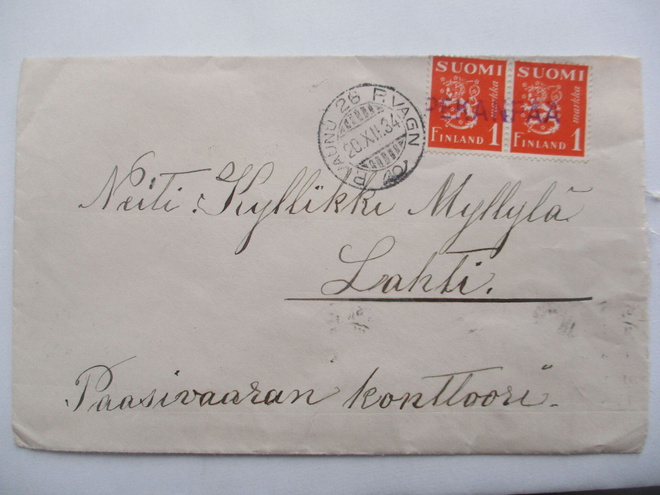 SUOMI SUOMI
markka markka
FINLAND 1 FINLAND 1
P.VAUNU 26 F.VAGN
20.XII.34
Neiti Kyllikki Myllylä
Lahti.
Paasivaaran konttoori.